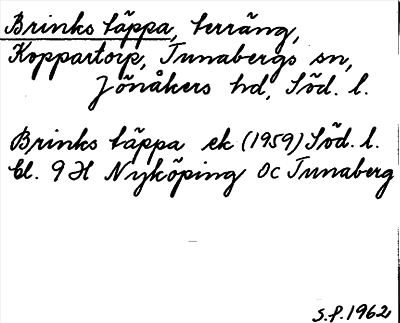 Brinks täppa, terräng,
Koppartorp, Tunabergs sn,
Jönåkers hd, Söd. l.
Brinks täppa ek (1959) Söd. l.
bl. 9 H Nyköping 0c Tunaberg
S.P. 1962